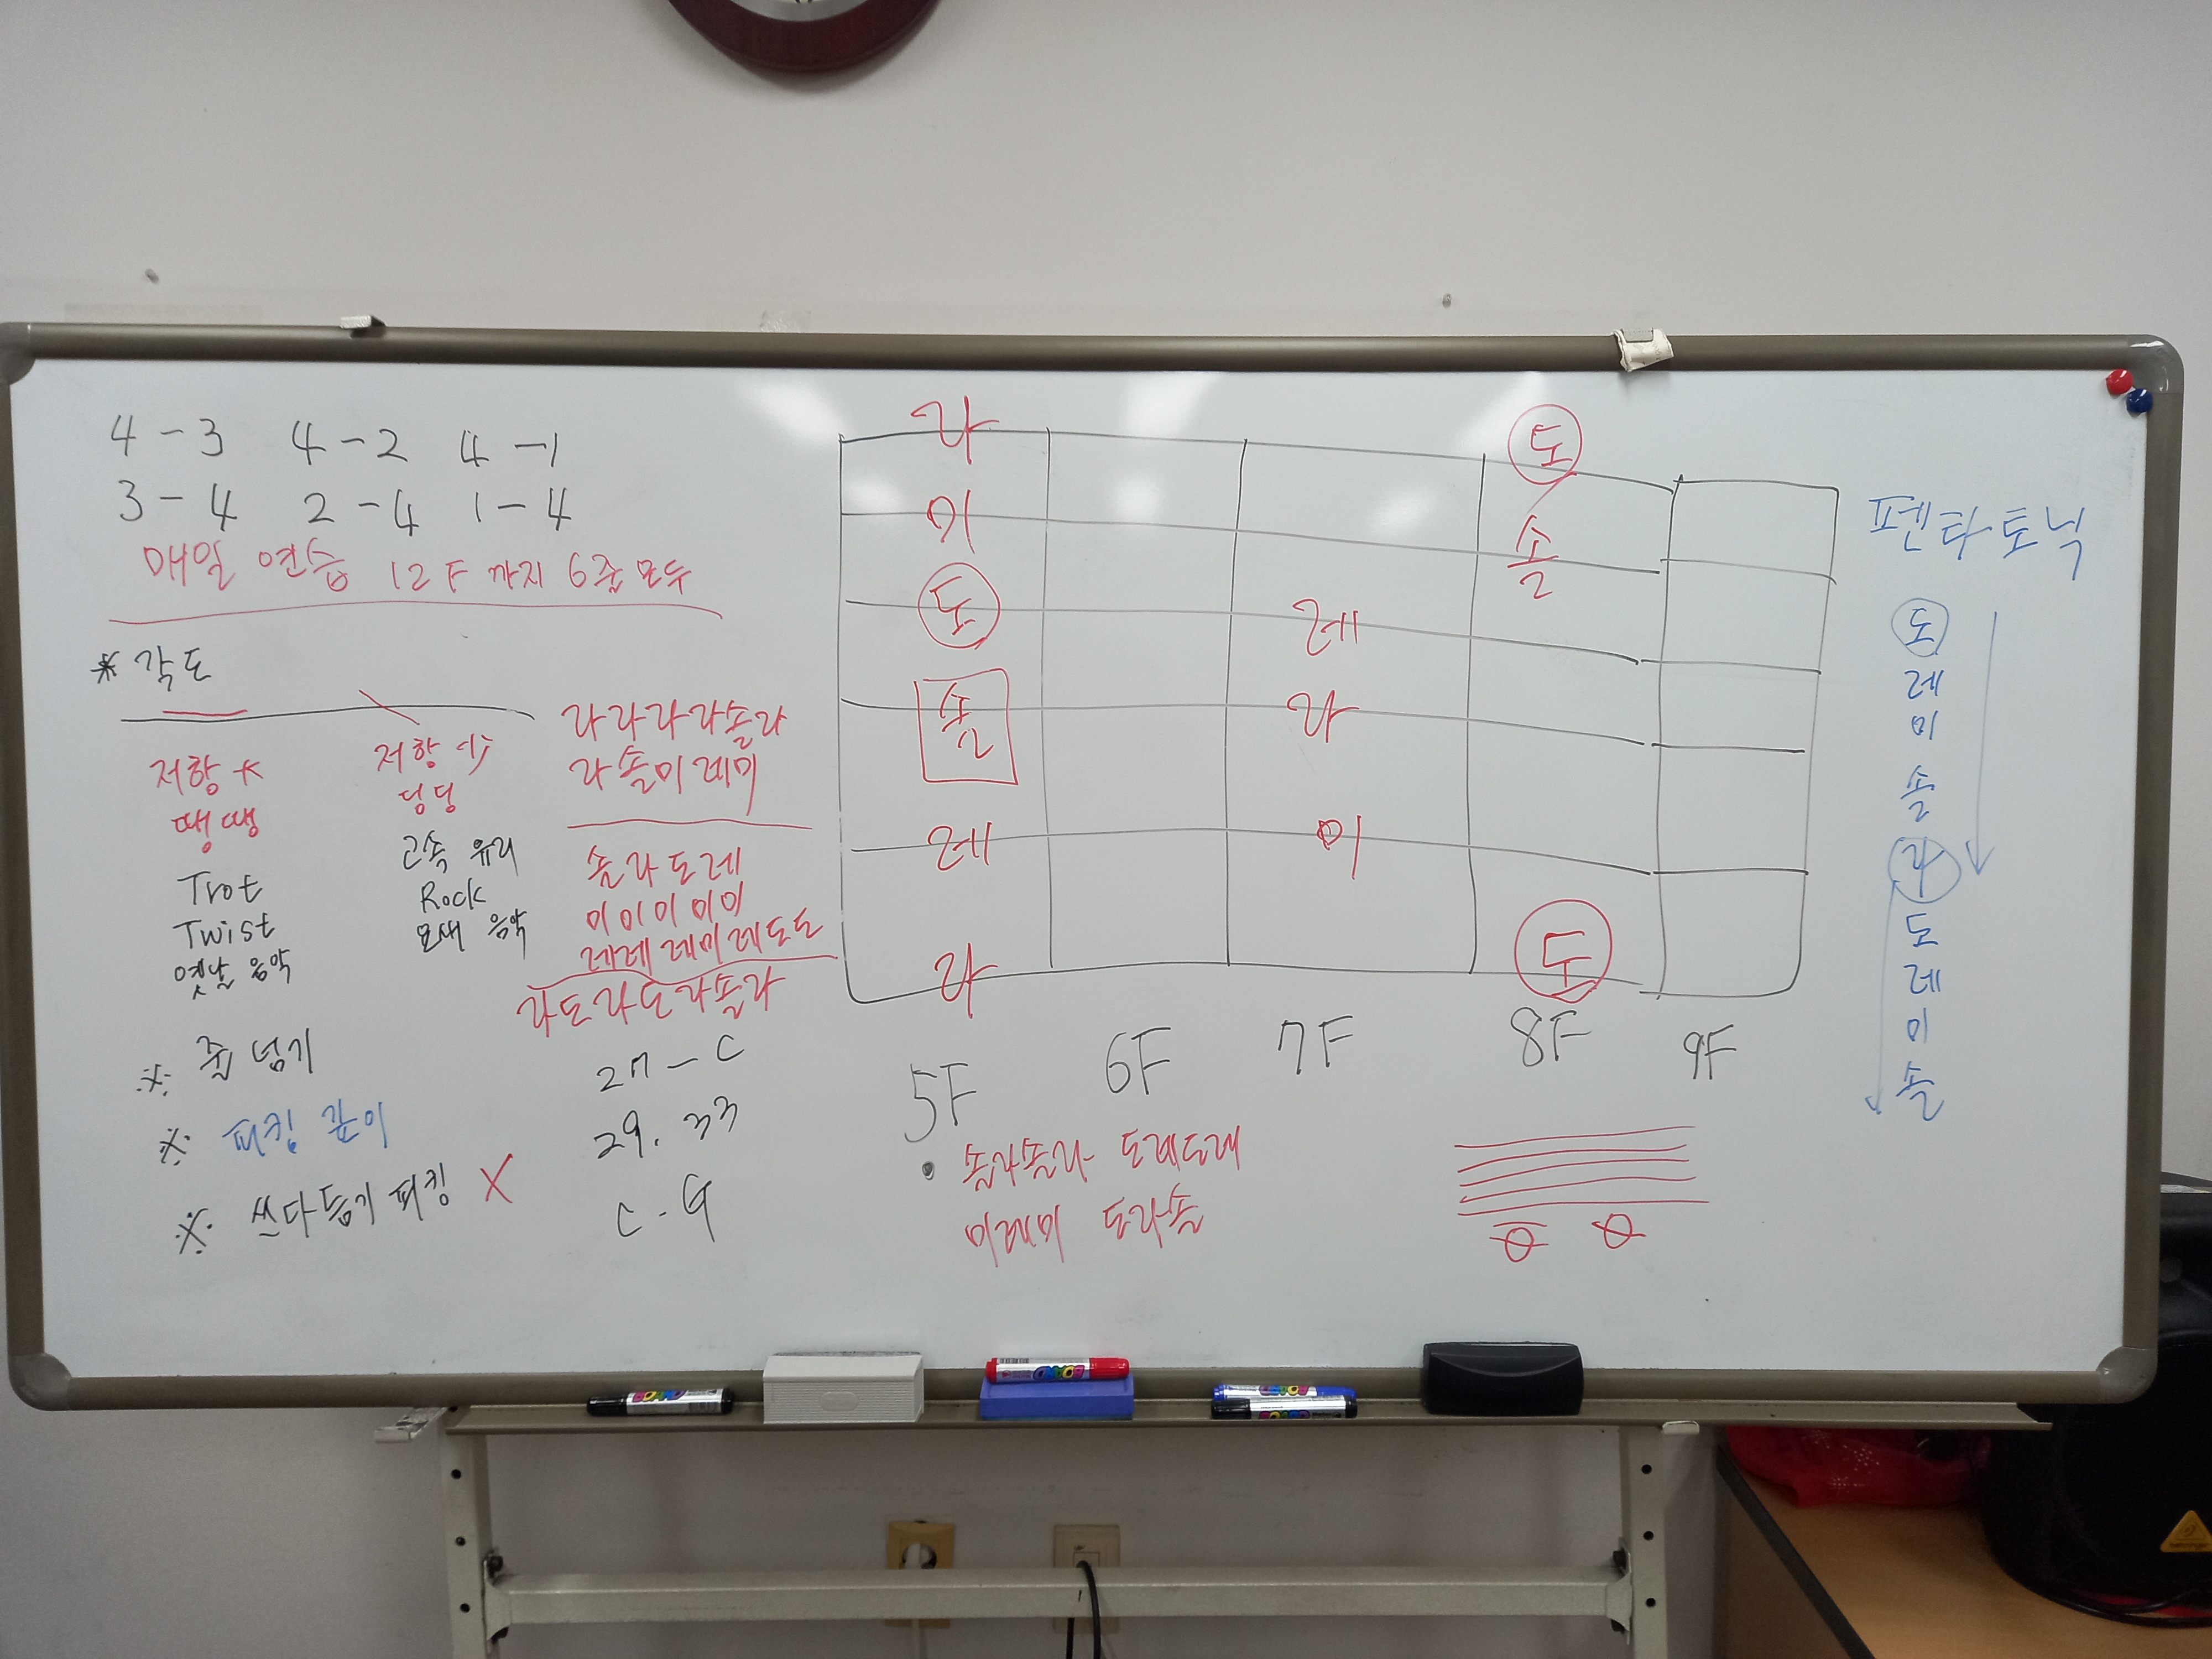 4-3 4-2 4-1
3-4 2-4 1-4
매일 연습 12F 까지 6줄 모두
* 각도
저항 大
땡땡
Trot
Twist
옛날 음악
저항 小
딩딩
고속 유리
Rock
모대 음악
※ 줄 넘기
※ 피킹 깊이
※ 쓰다듬기 피킹 X
라라라라솔라
라솔미레미
솔라도레
미미미미미
레레레미레도도
라도라도라솔라
27-C
29. 33
C-G
라 도
미 솔
도 레
솔 라
레 미
라 도
5F 6F 7F 8F 9F
• 솔라솔라 도레도레
미레미 도라솔
펜타토닉
도
레
미
솔
라
도
레
미
솔